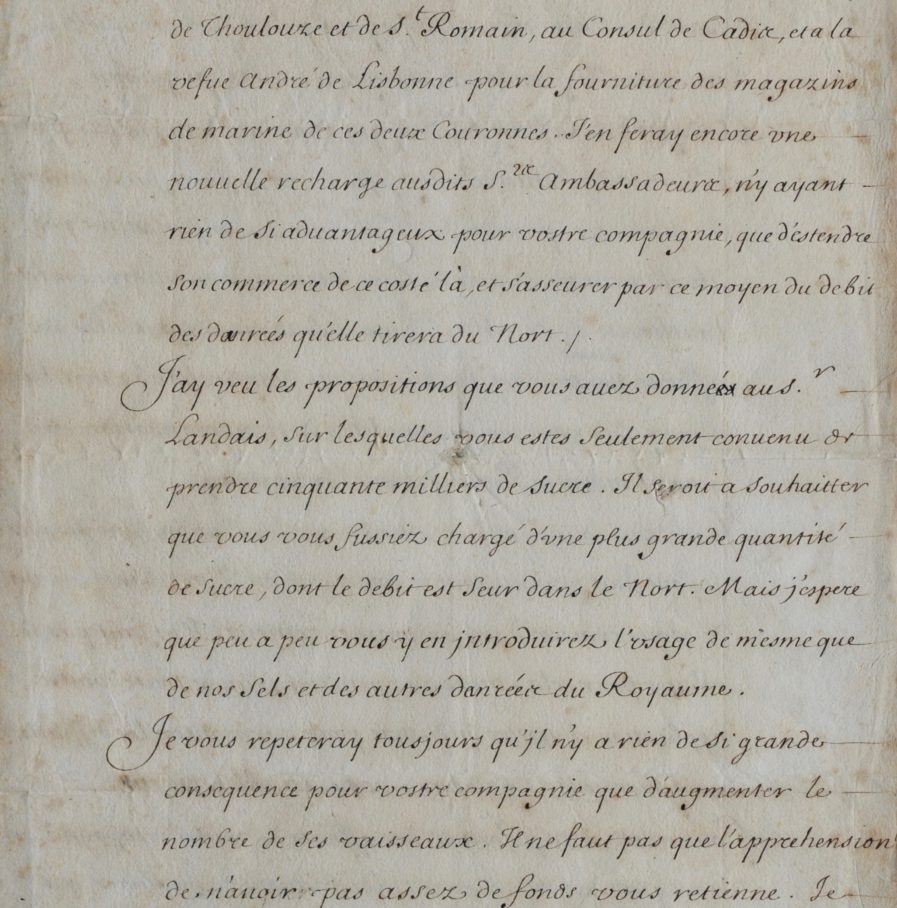 de Thoulouze et de S.t Romain, au Consul de Cadix, et a la
vefue André de Lisbonne pour la fourniture des magazins
de marine de ces deux Couronnes. J'en feray encore vne
nouuelle recharge ausdits S.rs Ambassadeurs, n'y ayant
rien de si aduantageux pour vostre compagnie, que d'estendre
son commerce de ce costé là, et s'asseurer par ce moyen du debit
des danreés qu'elle tirera du Nort. /.
J'ay veu les propositions que vous auez donneé au S.r
Landais, sur lesquelles vous estes seulement conuenu de
prendre cinquante milliers de sucre. Il seroit a souhaitter
que vous vous fussiez chargé d'vne plus grande quantité
de sucre, dont le debit est seur dans le Nort. Mais j'espere
que peu a peu vous y en jntroduirez l'vsage de mesme que
de nos sels et des autres danreés du Royaume.
Je vous repeteray tousjours qu'jl n'y a rien de si grande
consequence pour vostre compagnie que d'augmenter le
nombre de ses vaisseaux. Il ne faut pas que l'apprehension
de n'auoir pas assez de fonds vous retienne. Je